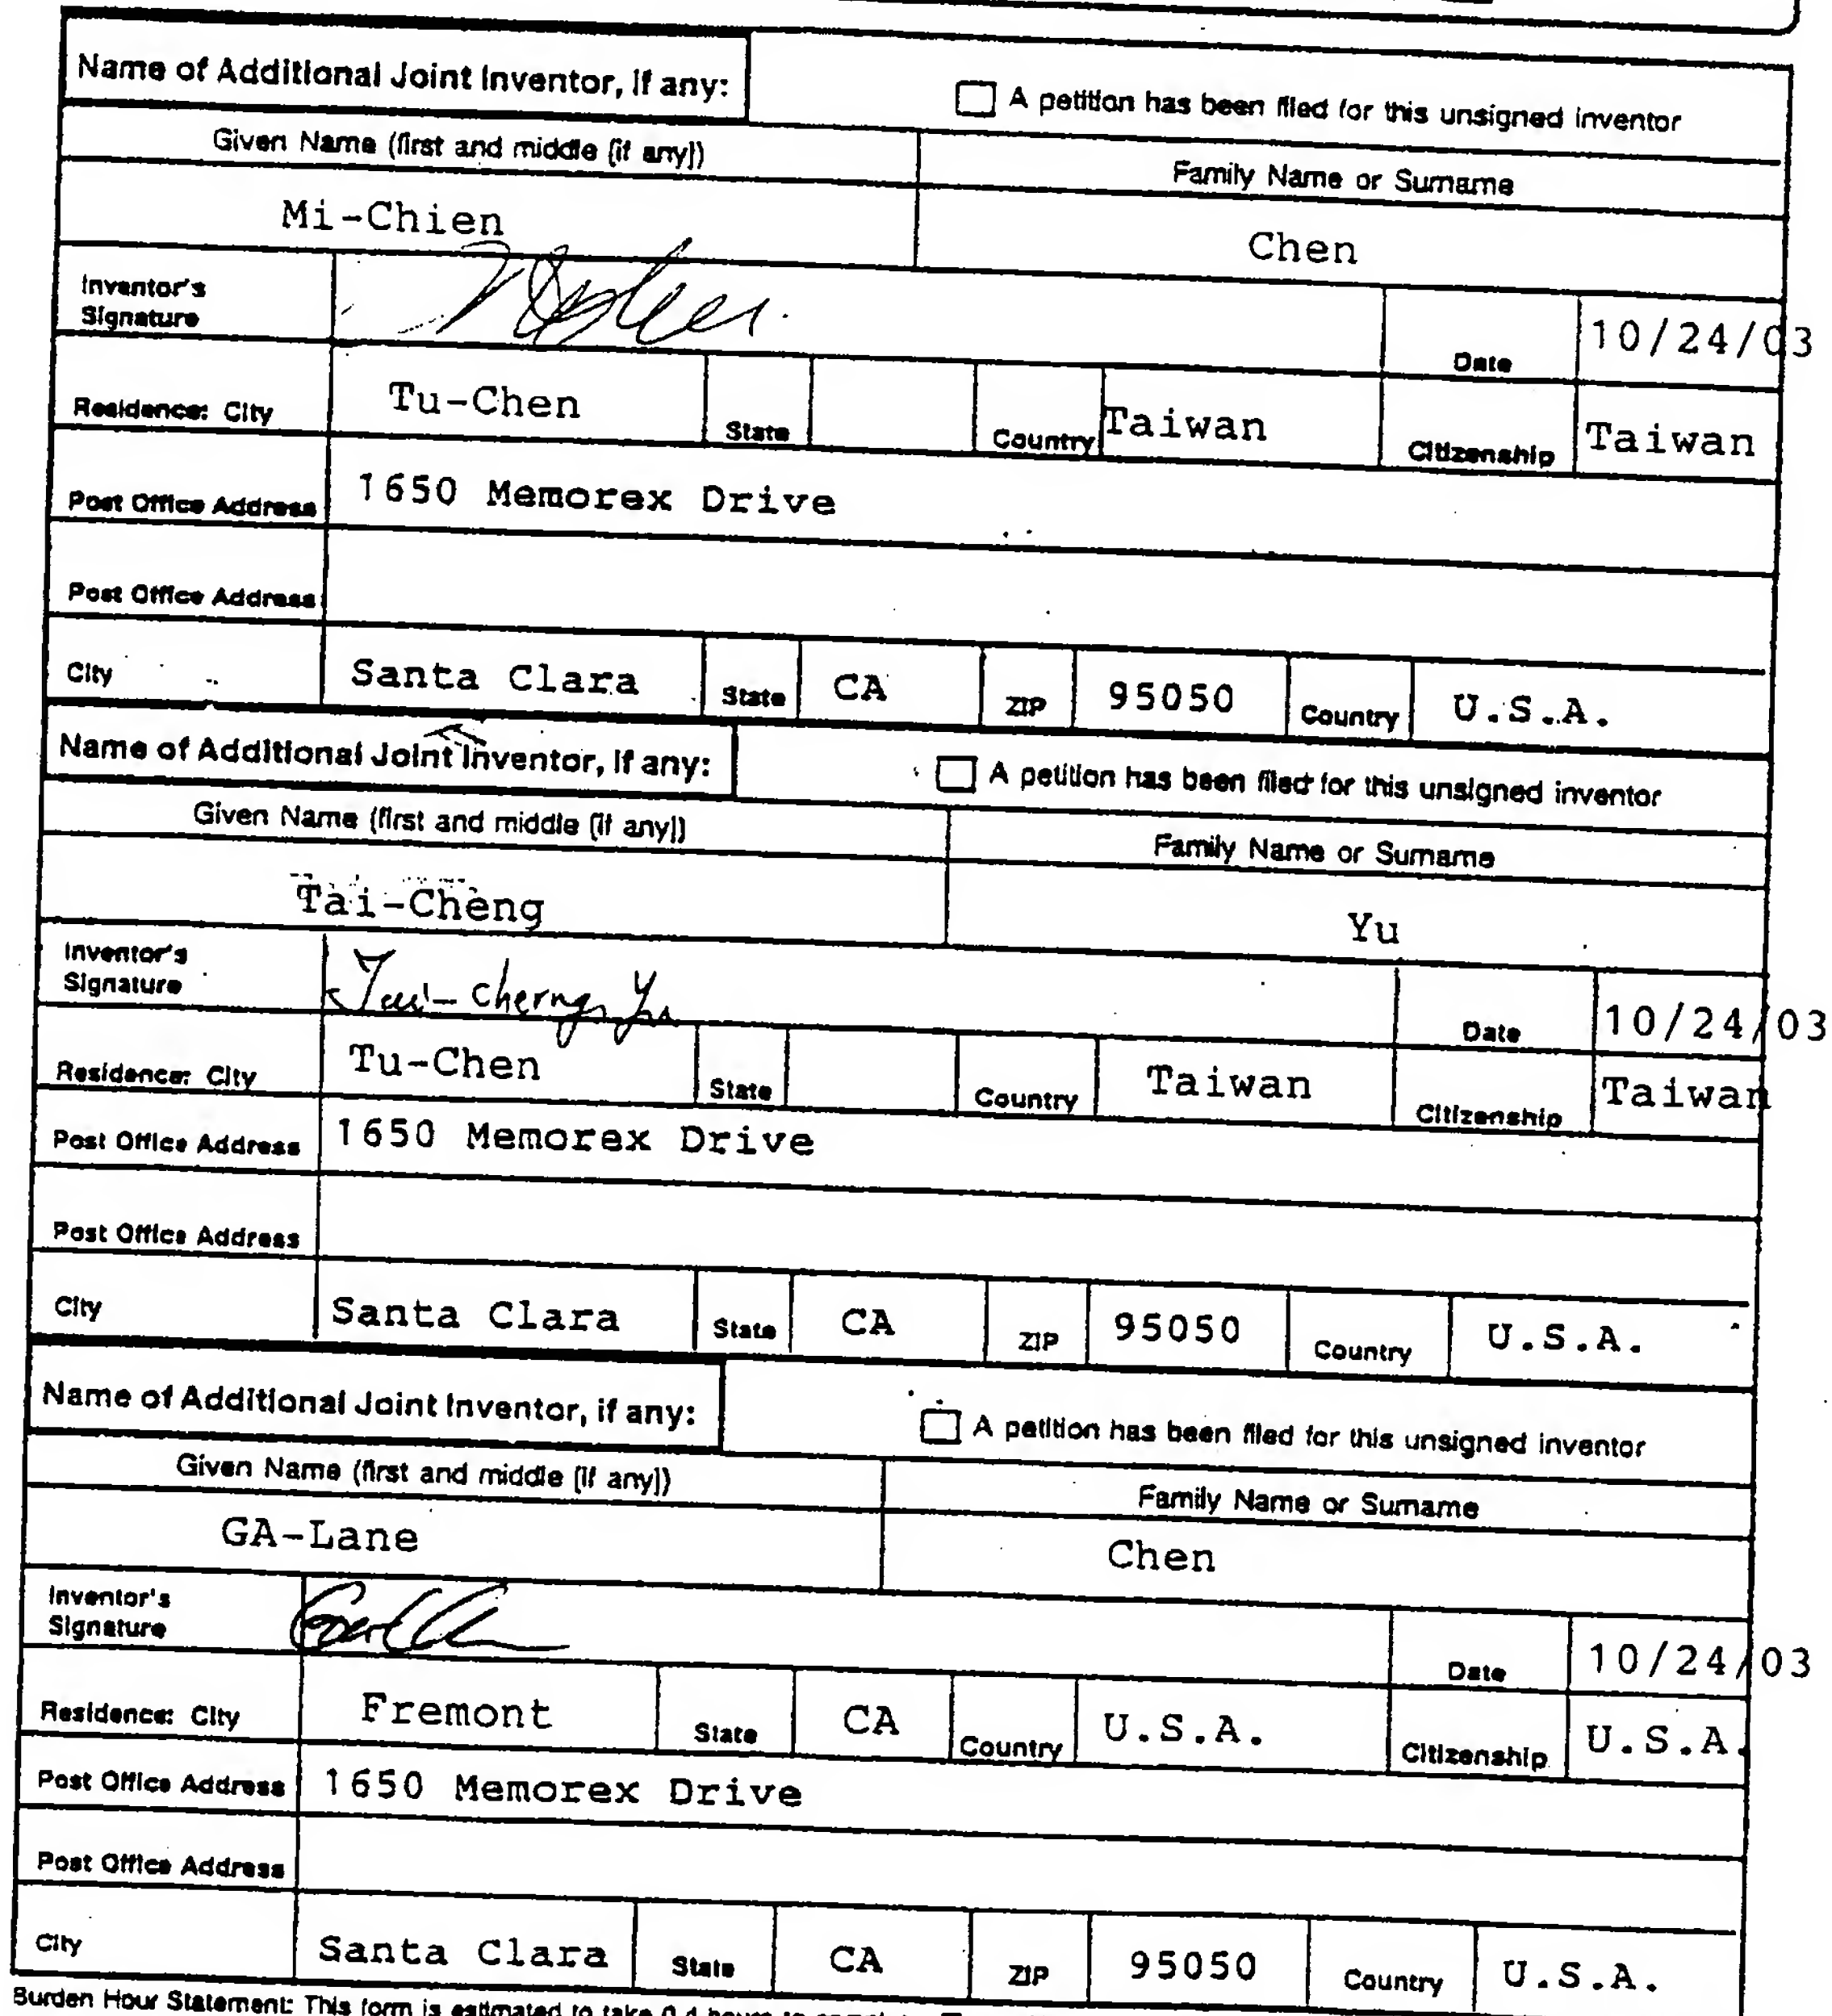 Name of Additional Joint Inventor, if any:
☐ A petition has been filed for this unsigned inventor
Given Name (first and middle [if any])
Family Name or Surname
Mi-Chien
Chen
Inventor's
Signature
Date 10/24/03
Residence: City Tu-Chen State Country Taiwan Citizenship Taiwan
Post Office Address 1650 Memorex Drive
Post Office Address
City Santa Clara State CA ZIP 95050 Country U.S.A.
Name of Additional Joint Inventor, if any:
☐ A petition has been filed for this unsigned inventor
Given Name (first and middle [if any])
Family Name or Surname
Tai-Cheng
Yu
Inventor's
Signature Tai-Cherng Yu Date 10/24/03
Residence: City Tu-Chen State Country Taiwan Citizenship Taiwan
Post Office Address 1650 Memorex Drive
Post Office Address
City Santa Clara State CA ZIP 95050 Country U.S.A.
Name of Additional Joint Inventor, if any:
☐ A petition has been filed for this unsigned inventor
Given Name (first and middle [if any])
Family Name or Surname
GA-Lane
Chen
Inventor's
Signature
Date 10/24/03
Residence: City Fremont State CA Country U.S.A. Citizenship U.S.A.
Post Office Address 1650 Memorex Drive
Post Office Address
City Santa Clara State CA ZIP 95050 Country U.S.A.
Burden Hour Statement: This form is estimated to take 0.4 hours to